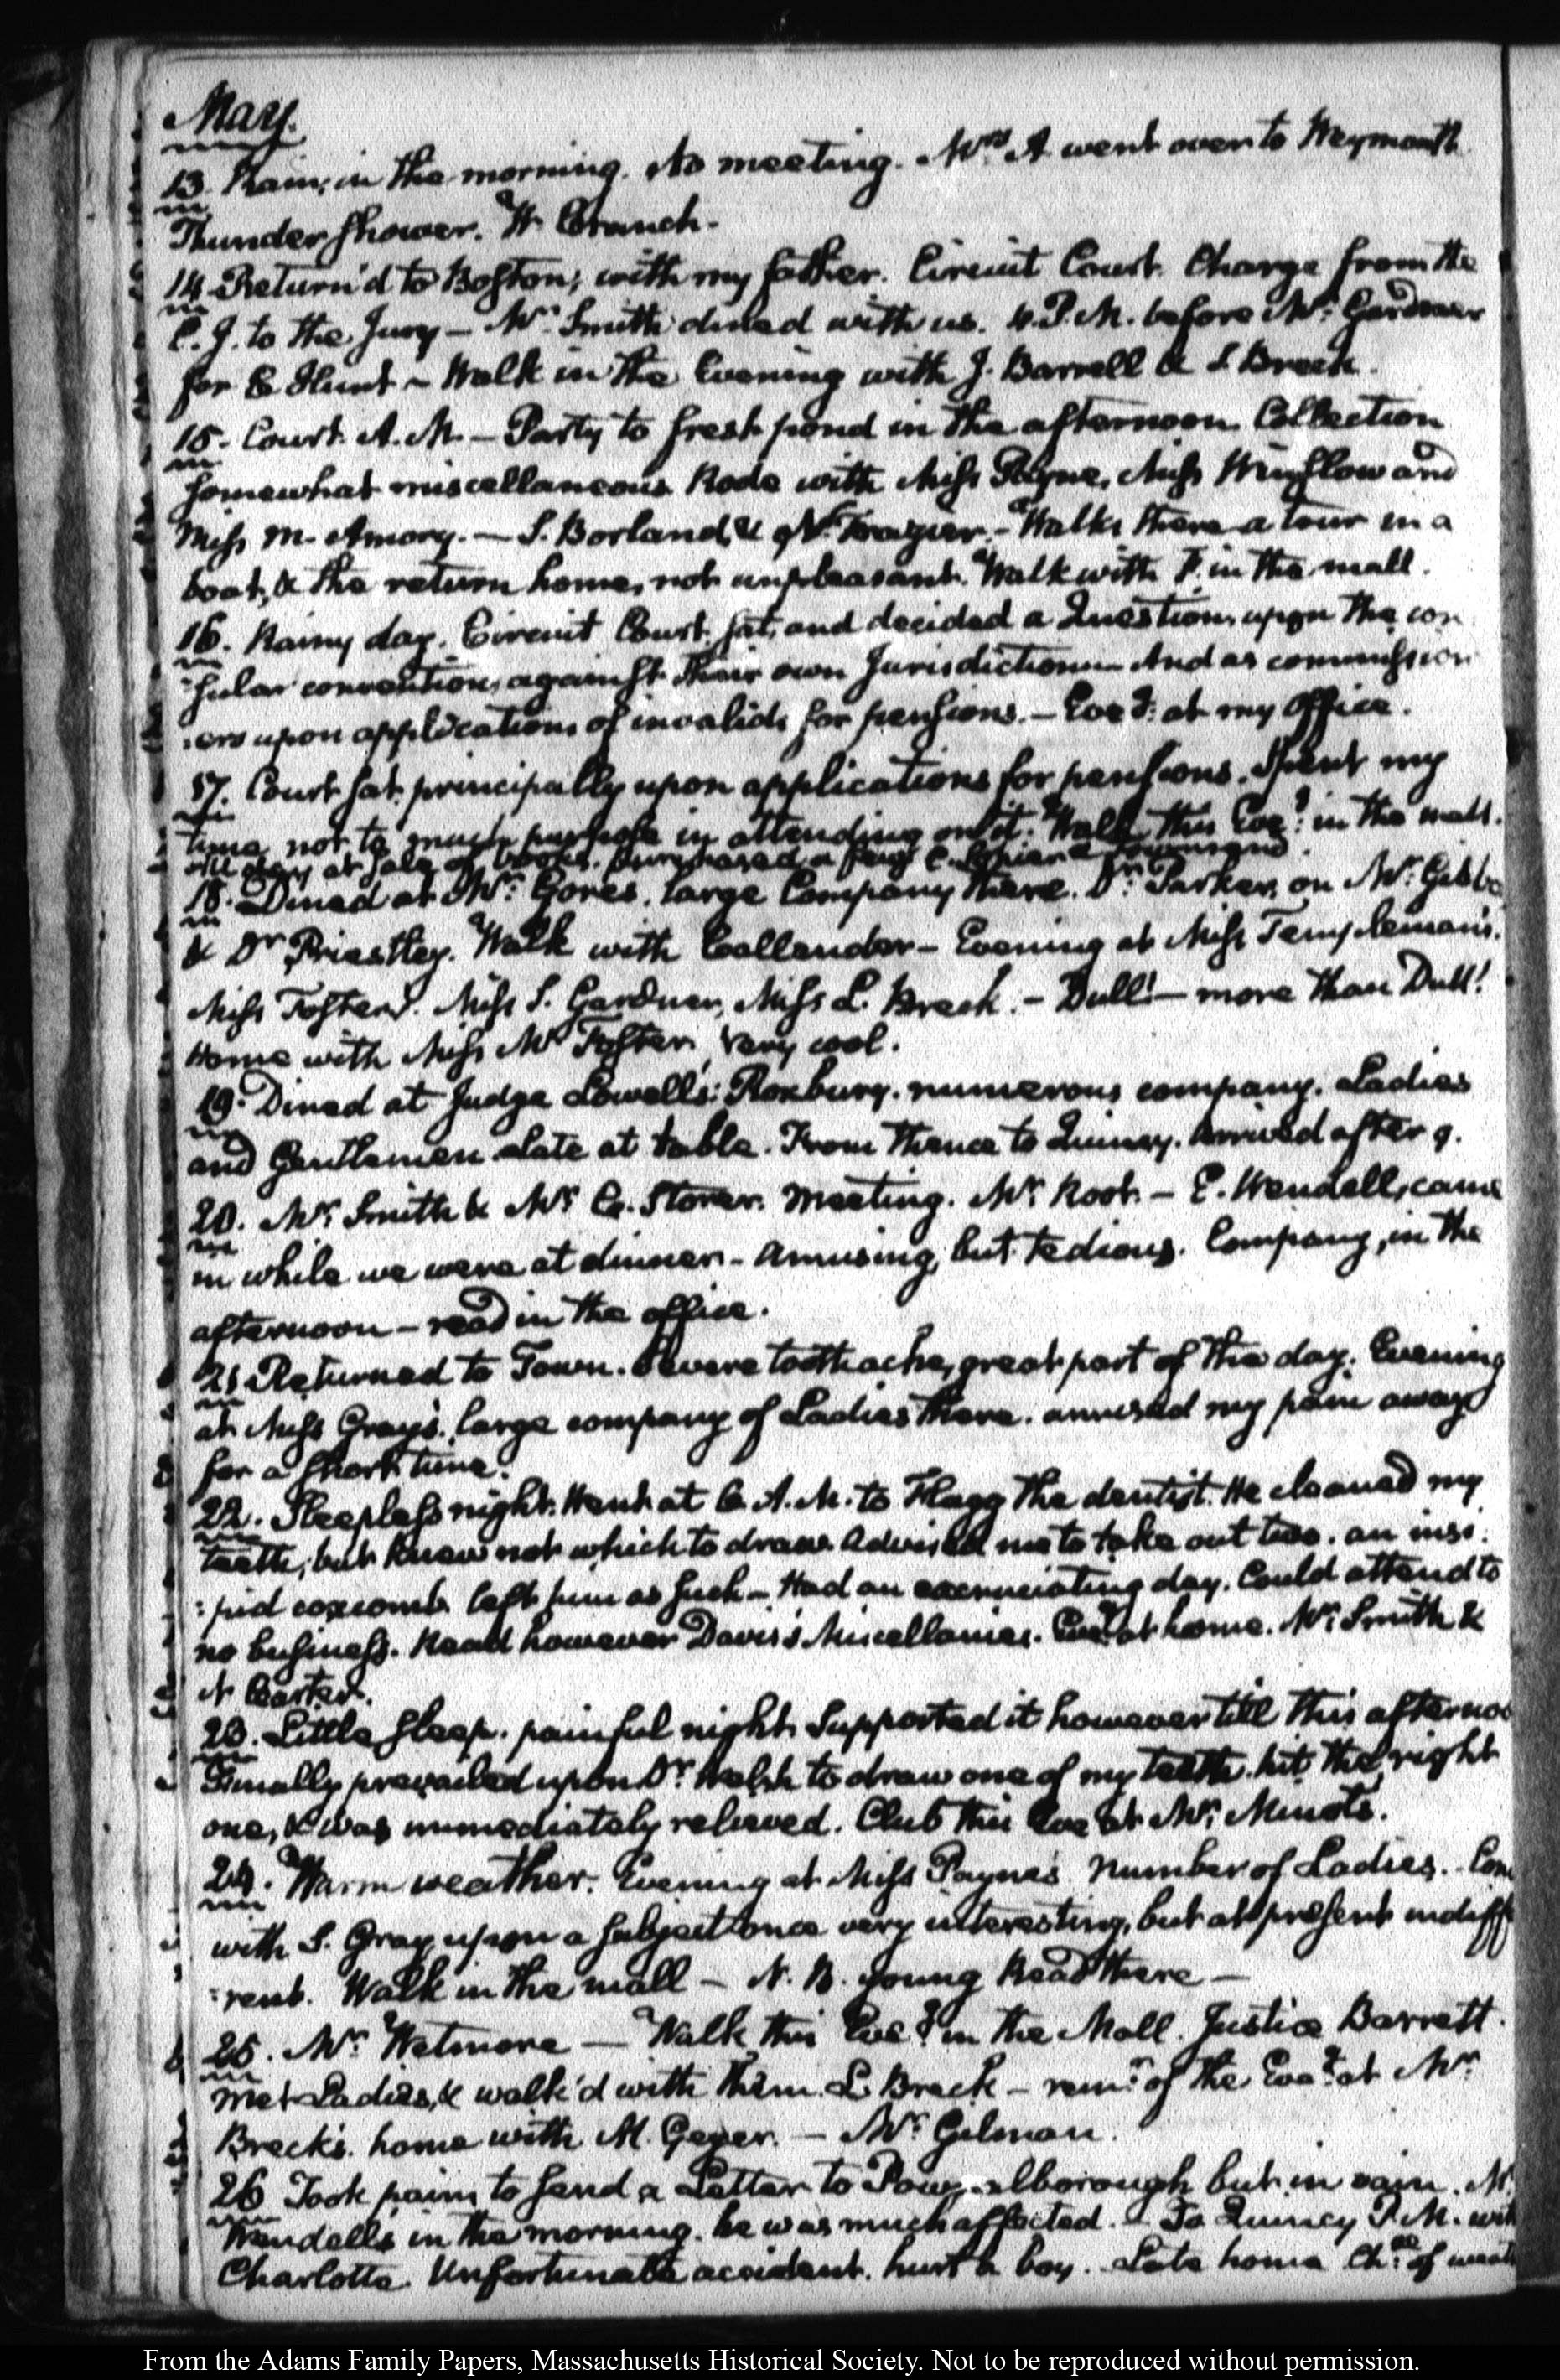 May.
13. Rain, in the morning. No meeting. Mrs. A went over to Weymouth.
Thunder shower. W. Cranch.
14. Return'd to Boston; with my father. Circuit Court. Charge from the
C. J. to the Jury — Mr. Smith dined with us. 4. P. M. before Mr. Gardner
for E Hunt — Walk in the Evening with J. Barrell & S. Breck.
15. Court. A. M. — Party to fresh pond in the afternoon. Collection
somewhat miscellaneous. Rode with Miss Payne, Miss Winslow and
Miss M. Amory. — S. Borland, & N. Frazier. — Walks there a tour in a
boat, & the return home, not unpleasant. Walk with F. in the mall.
16. Rainy day. Circuit Court sat, and decided a Question, upon the con
:sular convention, against their own Jurisdiction — And as commission
:ers upon applications of invalids for pensions. — Eveg. at my office.
17. Court sat, principally upon applications for pensions. Spent my
time not to much purpose in attending on it. Walk this Eveg. in the mall.
All day at sale of books. purchased a few.
18. Dined at Mr. Gores. large Company there. Dr. Parker, on Mr. Gibbo
& Dr. Priestley. Walk with Callender — Evening at Miss Templeman's.
Miss Fosters. Miss S. Gardner, Miss L. Breck. — Dull! — more than Dull!
Home with Miss M. Foster. very cool.
19. Dined at Judge Lowell's: Roxbury. numerous company. Ladies
and Gentlemen. Late at table. From thence to Quincy. arrived after 9.
20. Mr. Smith & Mr. C. Storer. Meeting. Mr. Root. — E. Wendell, came
in while we were at dinner. — Amusing, but tedious. Company, in the
afternoon — read in the office.
21. Returned to Town. Severe toothache, great part of the day. Evening
at Miss Gray's. large company of Ladies there. amused my pain away
for a short time.
22. Sleepless night. Went at 6. A. M. to Flagg the dentist. He cleaned my
teeth, but knew not which to draw. Advised me to take out two. an insi
:pid coxcomb. left him as such — Had an excruciating day. Could attend to
no business. Read however Davis's Miscellanies. Eveg. at home. Mr. Smith &
N Carter.
23. Little sleep. painful night. Supported it however till this afternoo
Finally prevailed upon Dr. Welsh to draw one of my teeth. hit the right
one, & was immediately relieved. Club this Eve at Mr. Minots.
24. Warm weather. Evening at Miss Payne's. Number of Ladies. — Con
with S. Gray upon a subject once very interesting, but at present indiffe
:rent. Walk in the mall — N. B. young Read there —
25. Mr. Wetmore — Walk this Eveg. in the Mall. Justice Barrett.
Met Ladies, & walk'd with them. L. Breck — remr. of the Eveg. at Mr.
Breck's. home with M. Geyer. — Mr. Gilman.
26 Took pains to send a Letter to Pownalborough but in vain. M
Wendell's in the morning. he was much affected. — To Quincy P. M. with
Charlotte. Unfortunate accident. hurt a boy. Late home. of
From the Adams Family Papers, Massachusetts Historical Society. Not to be reproduced without permission.